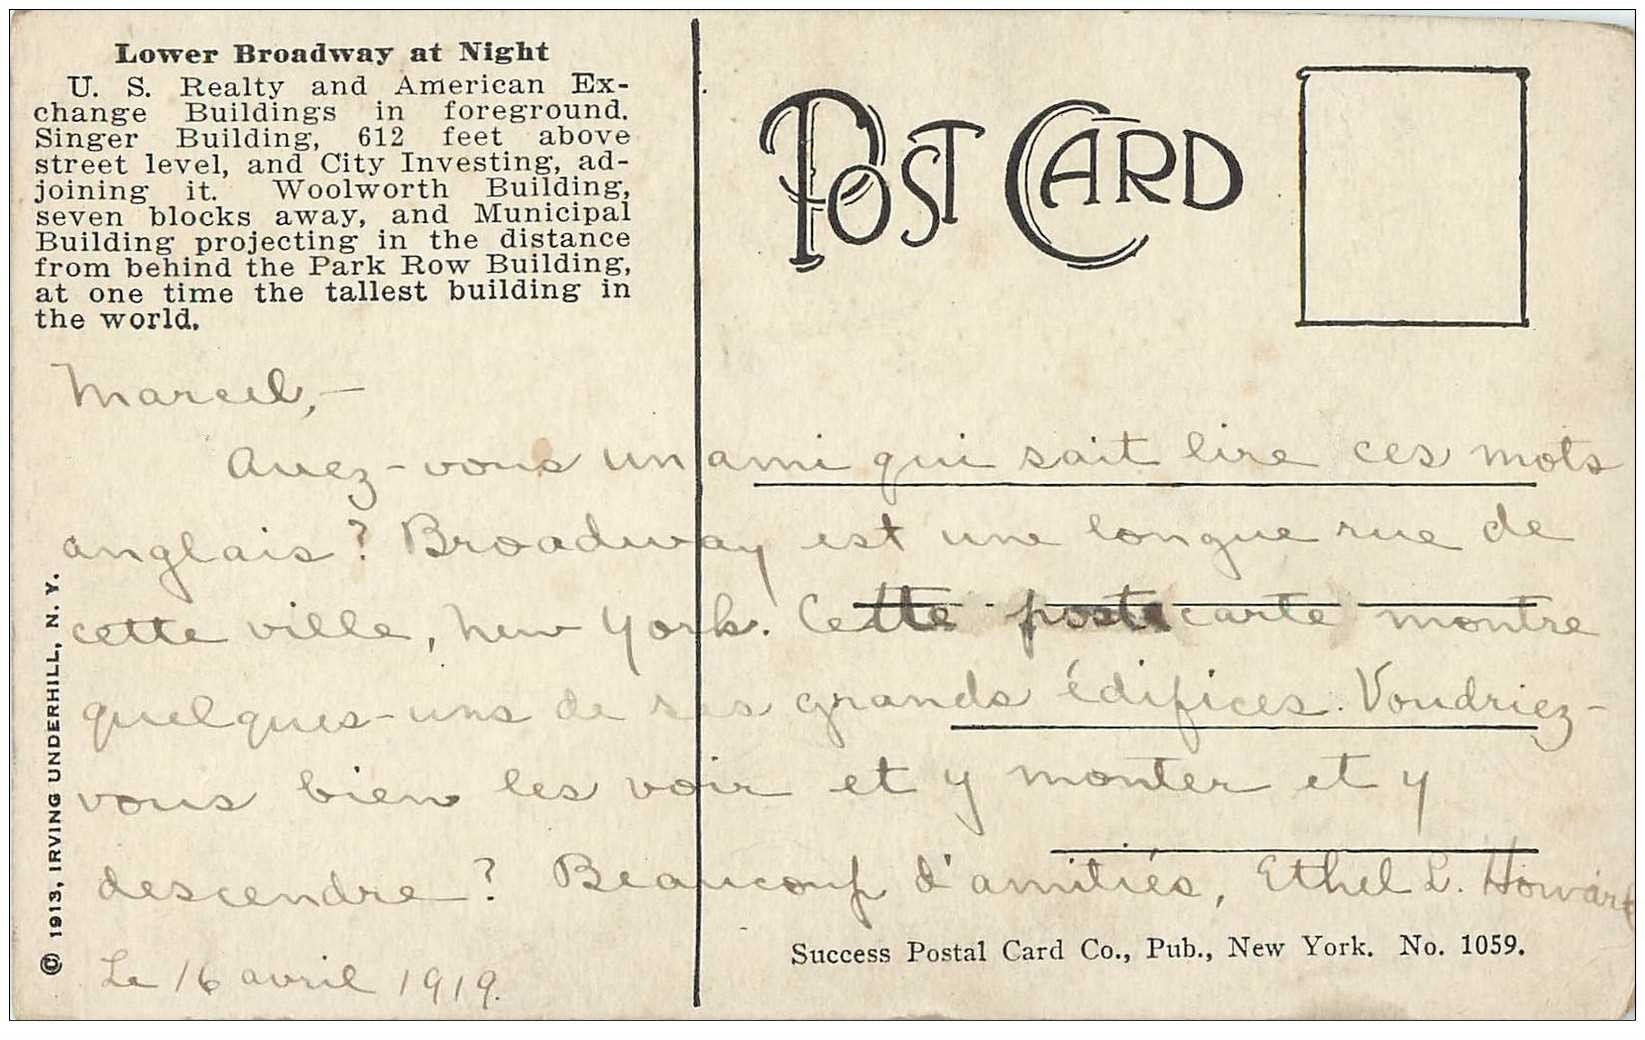 Lower Broadway at Night
U. S. Realty and American Ex-
change Buildings in foreground.
Singer Building, 612 feet above
street level, and City Investing, ad-
joining it. Woolworth Building,
seven blocks away, and Municipal
Building projecting in the distance
from behind the Park Row Building,
at one time the tallest building in
the world.
POST CARD
Marcel,—
Avez-vous un ami qui sait lire ces mots
anglais? Broadway est une longue rue de
cette ville, New York. Cette postecarte montre
quelques-uns de ses grands édifices. Voudriez-
vous bien les voir et y monter et y
descendre? Beaucoup d'amitiés, Ethel L. Howard
Le 16 avril 1919.
© 1913, IRVING UNDERHILL, N. Y.
Success Postal Card Co., Pub., New York. No. 1059.